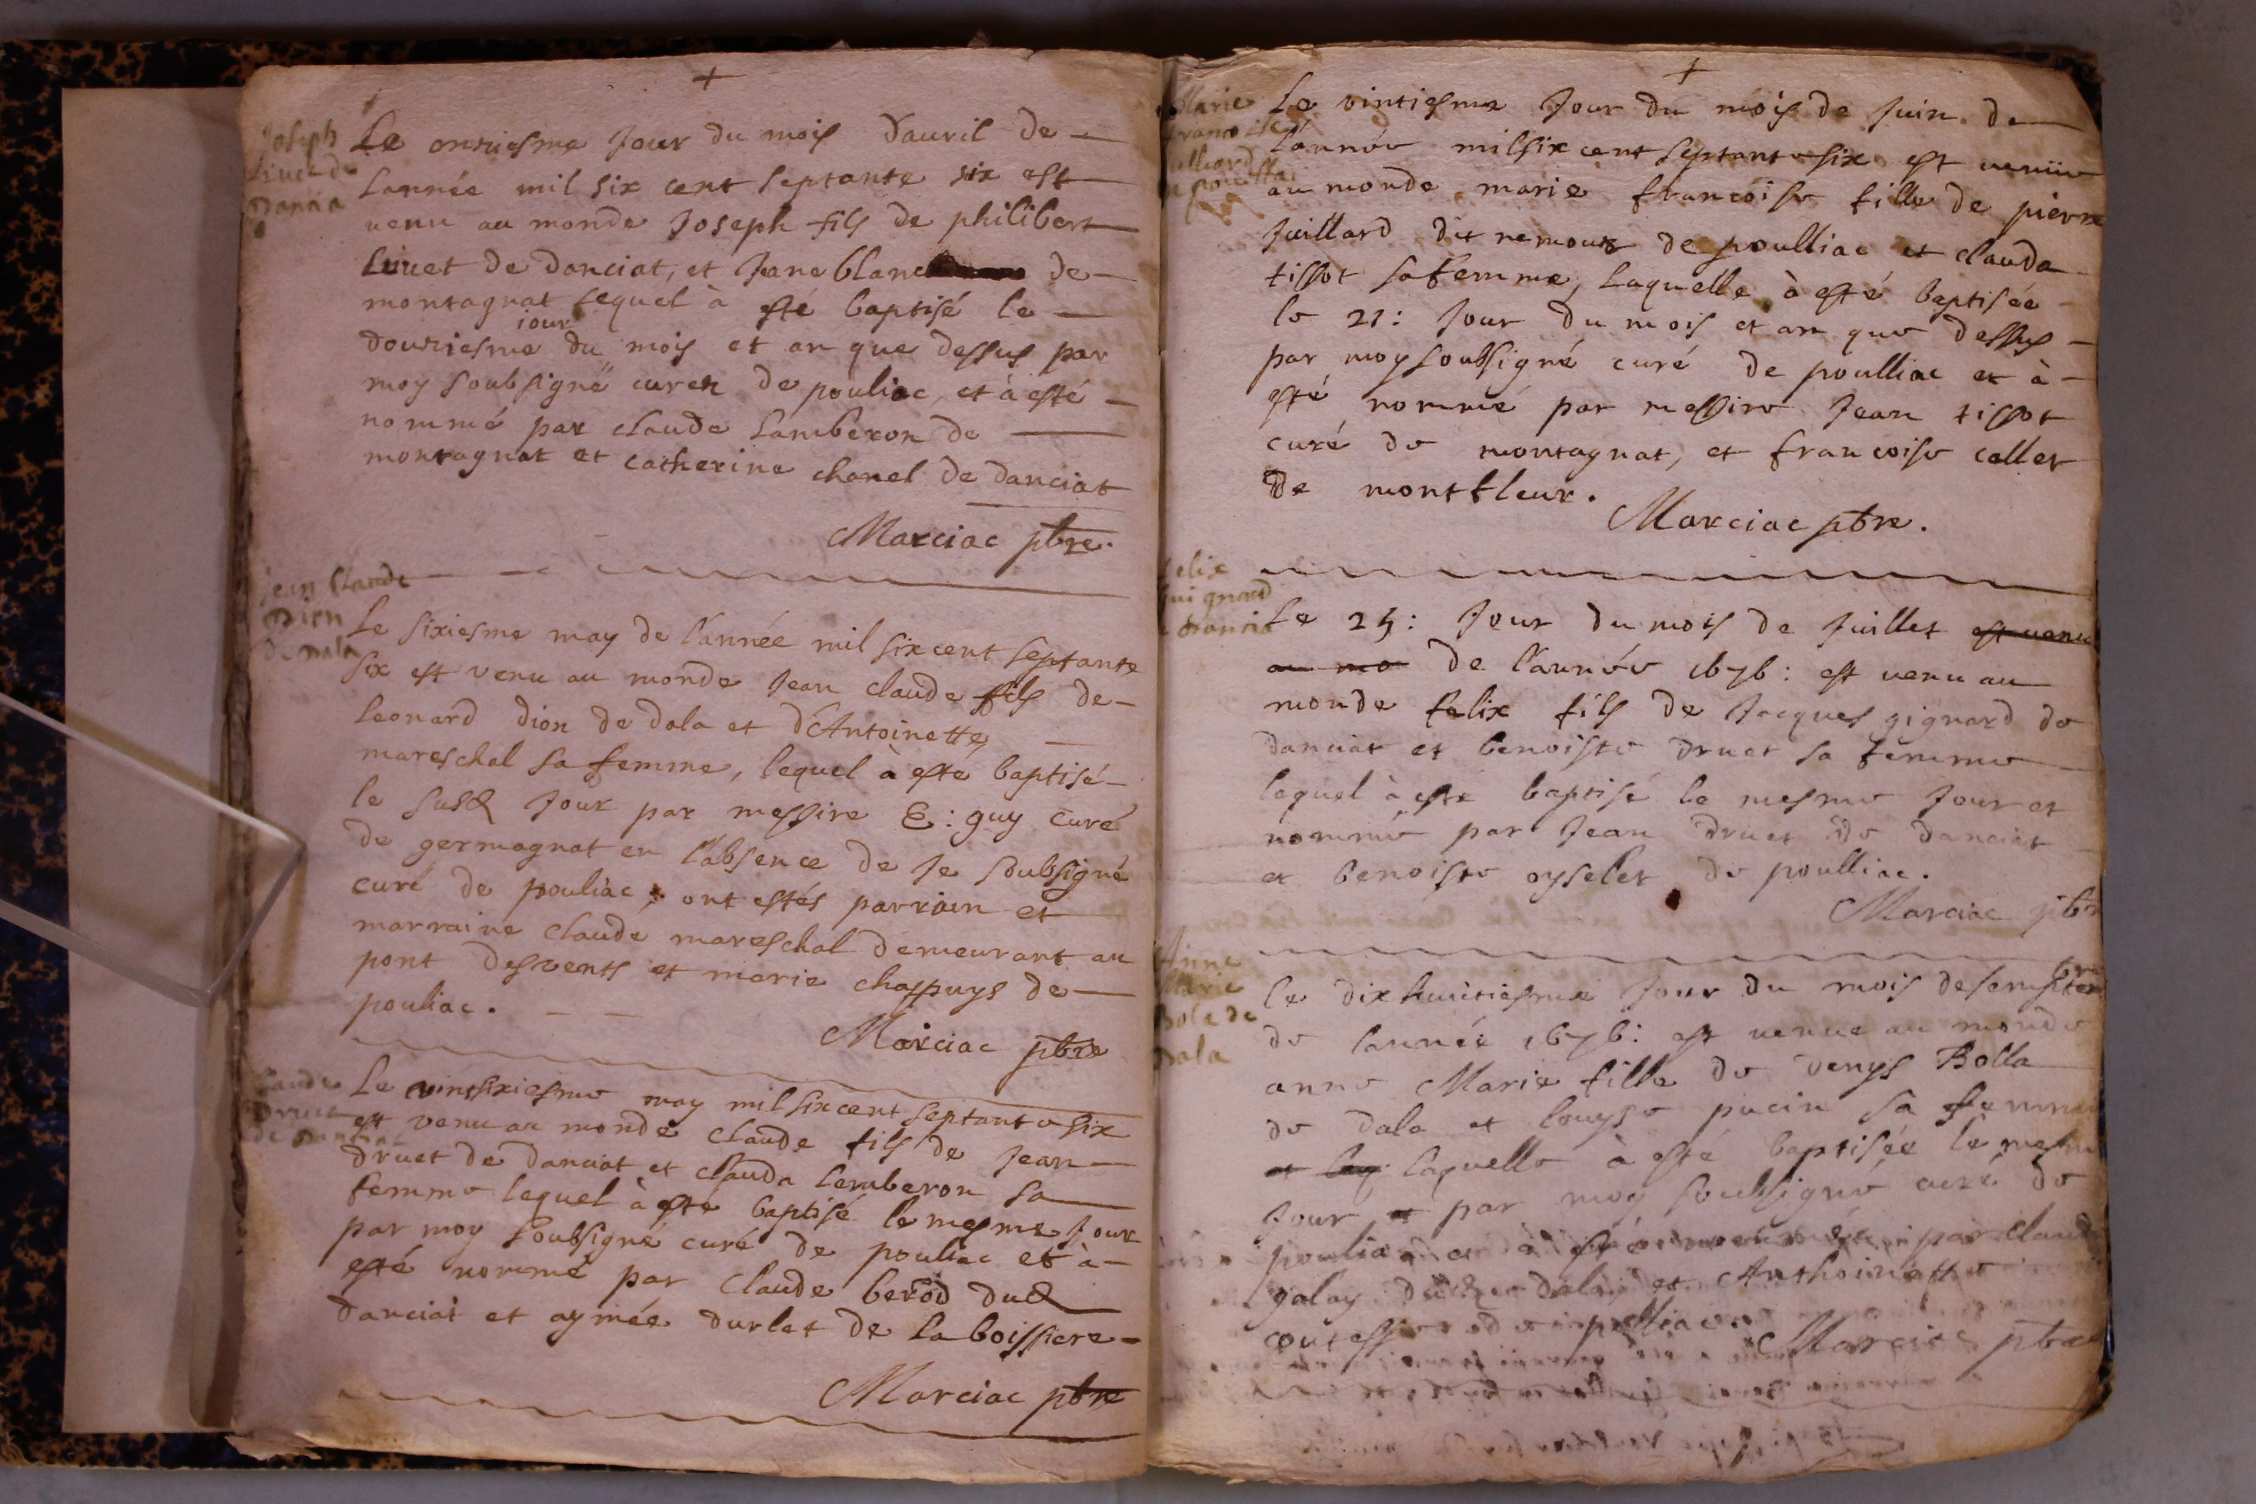 +
Joseph
Livet de
Dancia
Le onziesme Jour du mois d'auril de
l'année mil six cent septante six est
venu au monde Joseph fils de philibert
Livet de danciat, et Jane blanc de
montagnat lequel à esté baptisé le
douziesme jour du mois et an que dessus par
moy soubsigné curez de pouliac, et à esté
nommé par claude lamberon de
montagnat et catherine chanel de danciat
Marciac pbre.
Jean Claude
Dion
de dala
Le sixiesme may de l'année mil six cent septante
six est venu au monde Jean claude fils de
leonard dion de dala et d'Antoinette
mareschal sa femme, lequel à esté baptisé
le susd Jour par messire E: guy curé
de germagnat en l'absence de Je soubsigné
curé de pouliac, ont estés parrain et
marraine claude mareschal demeurant au
pont desvents et marie chappuys de
pouliac.
Marciac pbre
Claude
Druet
de danciat
Le vintsixiesme may mil six cent septante six
est venu au monde claude fils de Jean
druet de danciat et clauda lemberon sa
femme lequel à esté baptisé le mesme Jour
par moy soubsigné curé de pouliac et à
esté nommé par claude berod dud
danciat et aymée durlet de la boissiere
Marciac pbre
+
Marie
francoise
Juillard
Le vintiesme Jour du mois de Juin de
l'année mil six cent septante six est venüe
au monde marie francoise fille de pierre
Juillard dit remoux de poulliac et clauda
tissot sa femme, laquelle à esté baptisée
le 21: Jour du mois et an que dessus
par moy soubsigné curé de poulliac et à
esté nommé par messire Jean tissot
curé de montagnat, et francoise collet
de montfleur.
Marciac pbre.
felix
guignard
de dancia
Le 25: Jour du mois de Juillet est venu
au mo de l'année 1676: est venu au
monde felix fils de Jacques gignard de
danciat et benoiste druet sa femme
lequel à esté baptisé le mesme Jour et
nommé par Jean druet de danciat
et benoiste oyselet de poulliac.
Marciac pbre
Anne
Marie
Bola de
Dala
Le dixhuitiesme Jour du mois de septembre
de l'année 1676: est venue au monde
anne Marie fille de denys Bolla
de dala et louyse pucin sa femme
et laquelle à esté baptisée le mesme
Jour et par moy soubsigné curé de
pouliac et à esté nommée par claude
galay de dala, et Anthoinette
de pulliac.
Marciac pbre